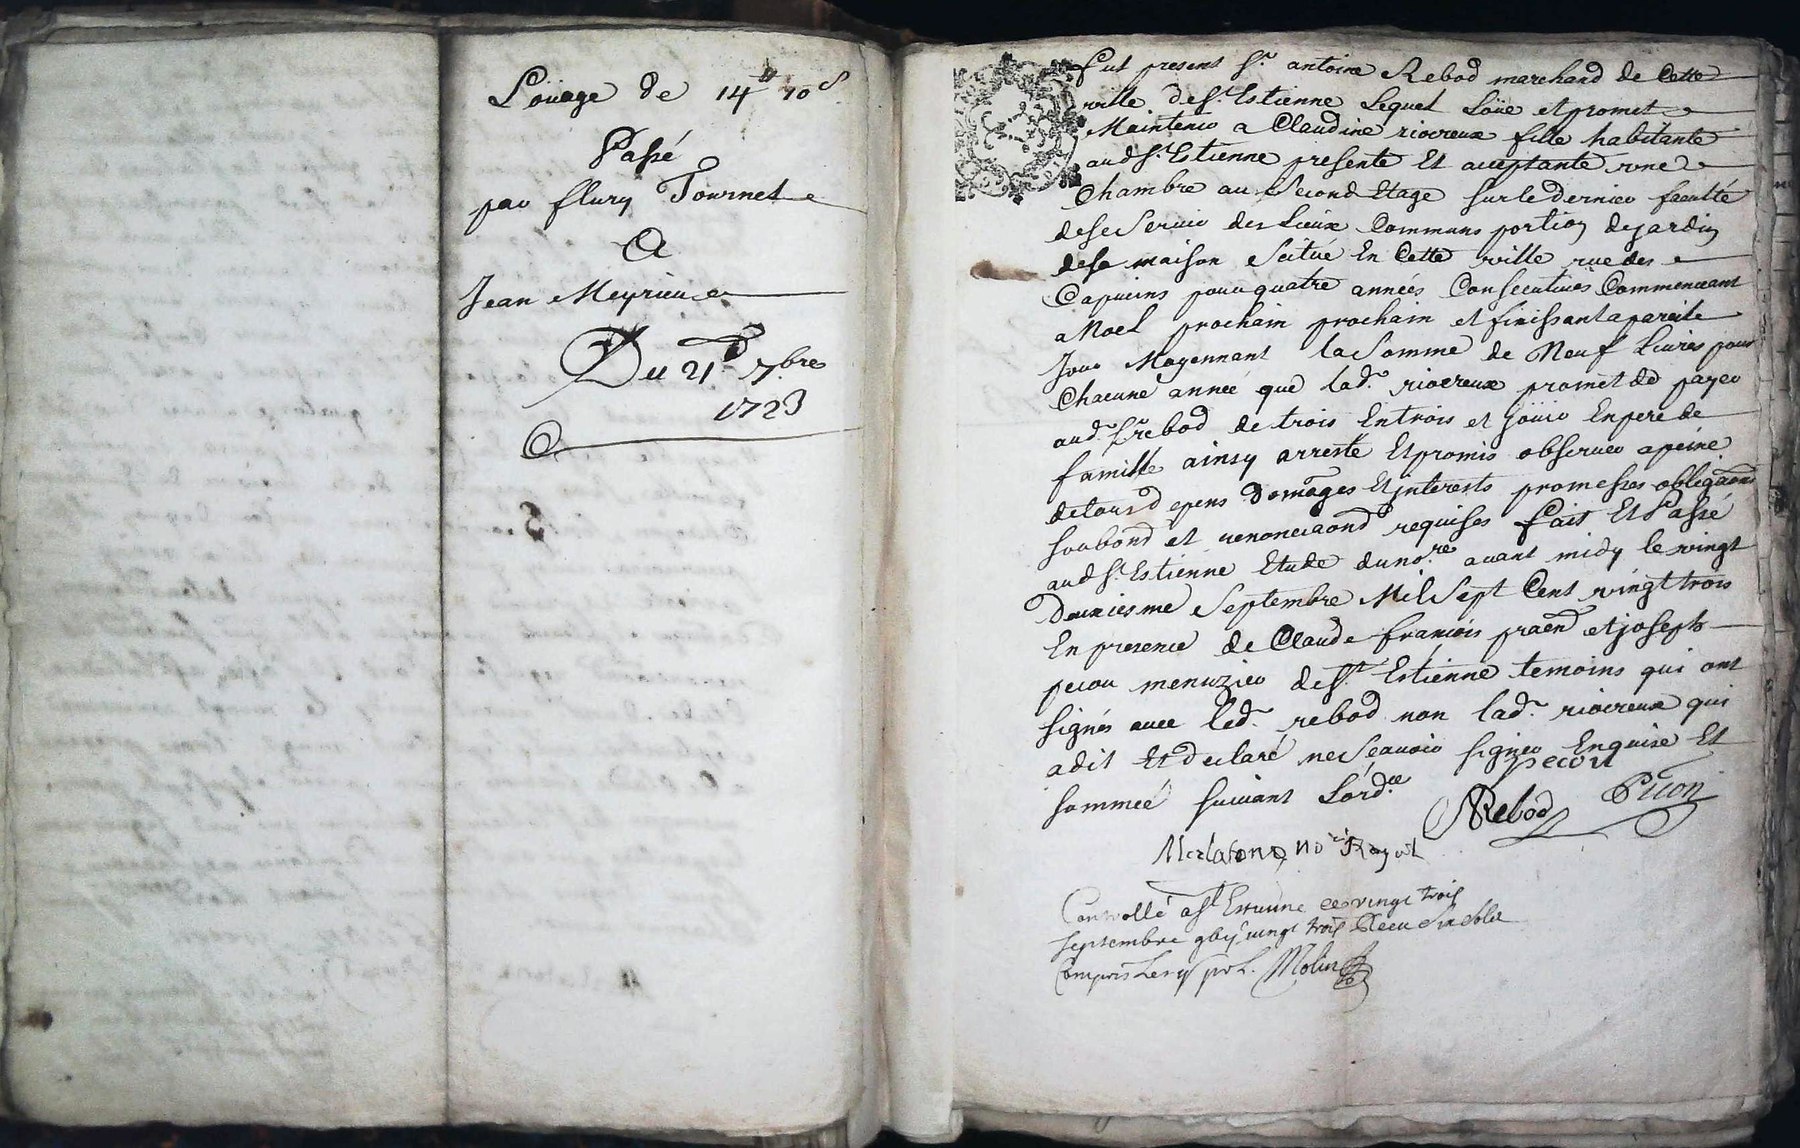 Loüage de 14ᵗᵗ 10ˢ
Passé
par fleury Tournet
A
Jean Meyrieu
Du 21ᵉ 7bre
1723
fut present Sr. antoine Rebod marchand de Cette
ville de St. Estienne Lequel Loüe et promet
Maintenir a Claudine rioureux fille habitante
aud St. Estienne presente Et aceptante une
Chambre au Second Etage sur le dernier faculté
de se Servir des Lieux Communs portion de jardin
de sa maison Scitué En Cette ville rue des
Capucins pour quatre années Consecutives Commenceant
a Noel prochain prochain et finissant a pareile
Jour Moyennant la Somme de Neuf Livres pour
Chacune année que lad. rioureux promet de payer
aud. Sr. rebod de trois En trois et joüir En pere de
famille ainsy arresté Et promis observer a peine
de tous depens Domages Et jnterests promesses obligaōns
soubond et renonciaōnd requises fait Et Passé
aud St. Estienne Etude du nore. avant midy le vingt
deuxiesme Septembre Mil Sept Cent vingt trois
En presence de Claude françois et joseph
pecou menuzier de St. Estienne temoins qui ont
signés avec led. rebod non lad. rioureux qui
a dit Et declaré ne Scavoir signer Enquise Et
sommeé suivant Lord.ce
pecou
Rebod Picon
No.re Royal
Controllé a St. Estienne ce vingt trois
septembre vingt trois Receu Six Sols
Compris Les Molin